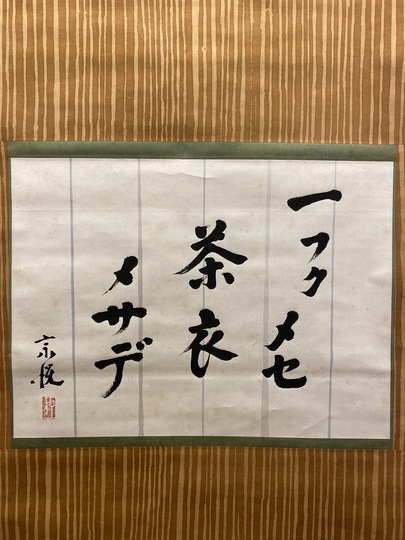 一フクメセ
茶衣
メサデ
宗悦